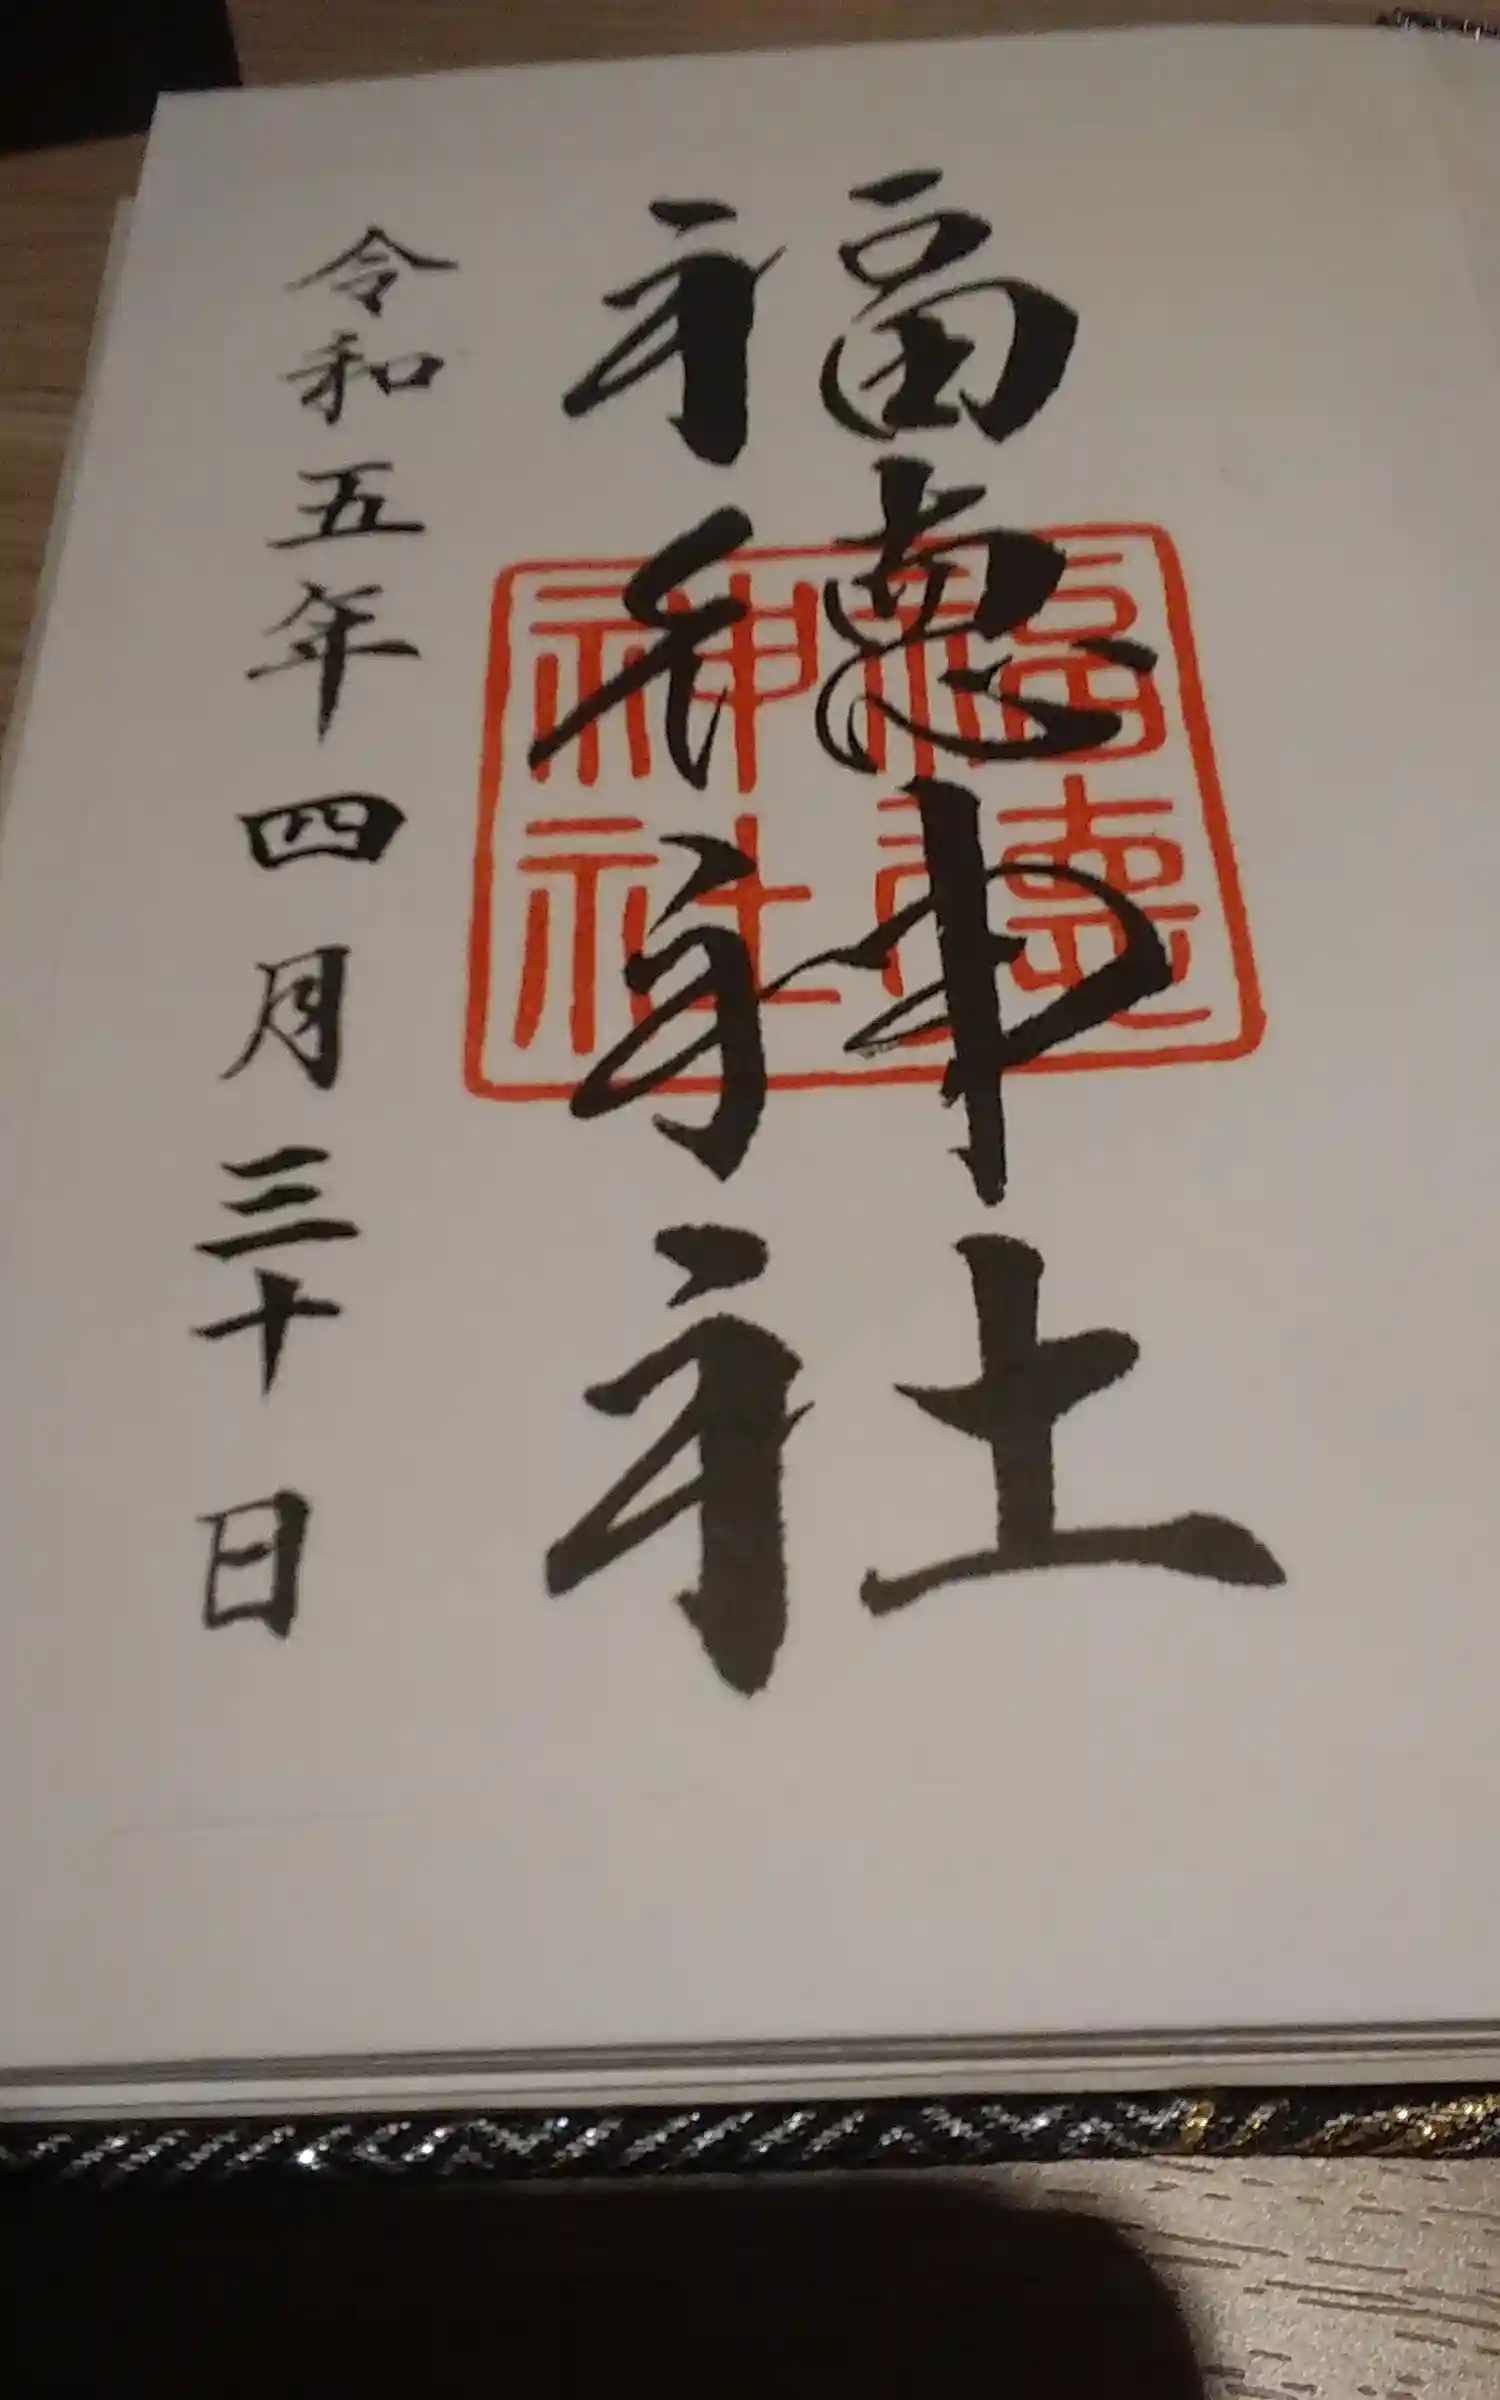 福徳神社
令和五年四月三十日
福徳
神社